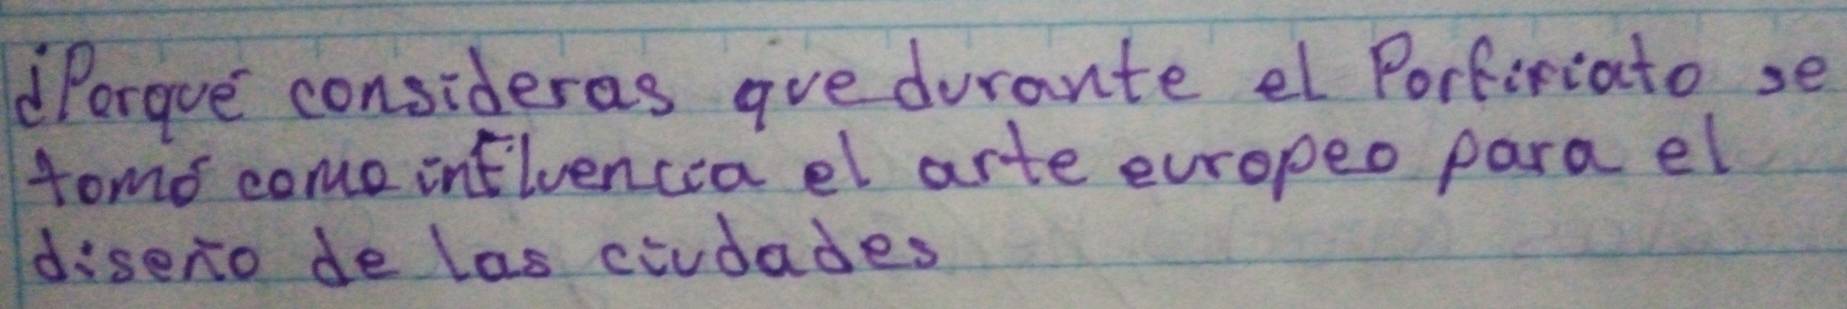 ¿Porqué consideras que durante el Porfiriato se
tomó como influencia el arte europeo para el
diseño de las ciudades